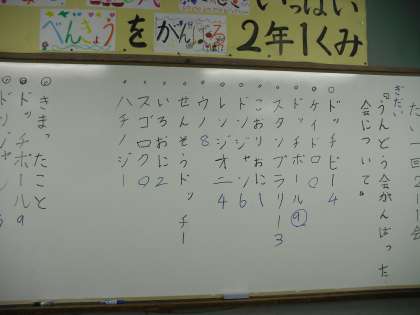 いっぱい
べんきょうをがんばる2年1くみ
ぎだい
「うんどう会がんばった
会について」
ドッチビー4
・ケイドロ0
・ドッチボール⑨
・スタンプラリー3
・こおりおに1
・レンジオニ4
・ウノ8
・せんそうドッチー
・いろおに2
・スゴロク0
・ハチノジー
きまったこと
ドッチボール9